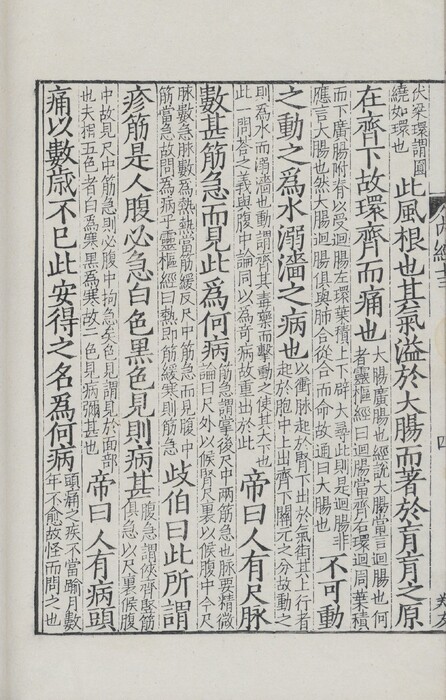 伏梁謂圜
繞如環也
此風根也其氣溢於大腸而著於肓肓之原
在齊下故環齊而痛也
大腸廣腸也經說大腸當言迴腸也何
者靈樞經曰迴腸當齊右環迴周葉積
而下廣腸附脊以受迴腸左環葉積上下辟大尋此則是迴腸非
應言大腸也然大腸迴腸俱與肺合從合而命故通曰大腸也
不可動
之動之爲水溺濇之病也
以衝脉起於腎下出於氣街其上行者
起於胞中上出齊下關元之分故動之
則爲水而溺濇也動謂齊其毒藥而擊動之使其大下也
此一問荅之義與腹中論同以爲奇病故重出於此
帝曰人有尺脉
數甚筋急而見此爲何病
筋急謂掌後尺中兩筋急也脉要精微
論曰尺外以候腎尺裏以候腹中今尺
脉數急脉數爲熱熱當筋緩反尺中筋急而見腹中
筋當急故問爲病乎靈樞經曰熱即筋緩寒則筋急
歧伯曰此所謂
疹筋是人腹必急白色黑色見則病甚
腹急謂俠齊竪筋
俱急以尺裏候腹
中故見尺中筋急則必腹中拘急矣色見謂見於面部
也夫相五色者白爲寒黑爲寒故二色見病彌甚也
帝曰人有病頭
痛以數歲不已此安得之名爲何病
頭痛之疾不當踰月數
年不愈故怪而問之也